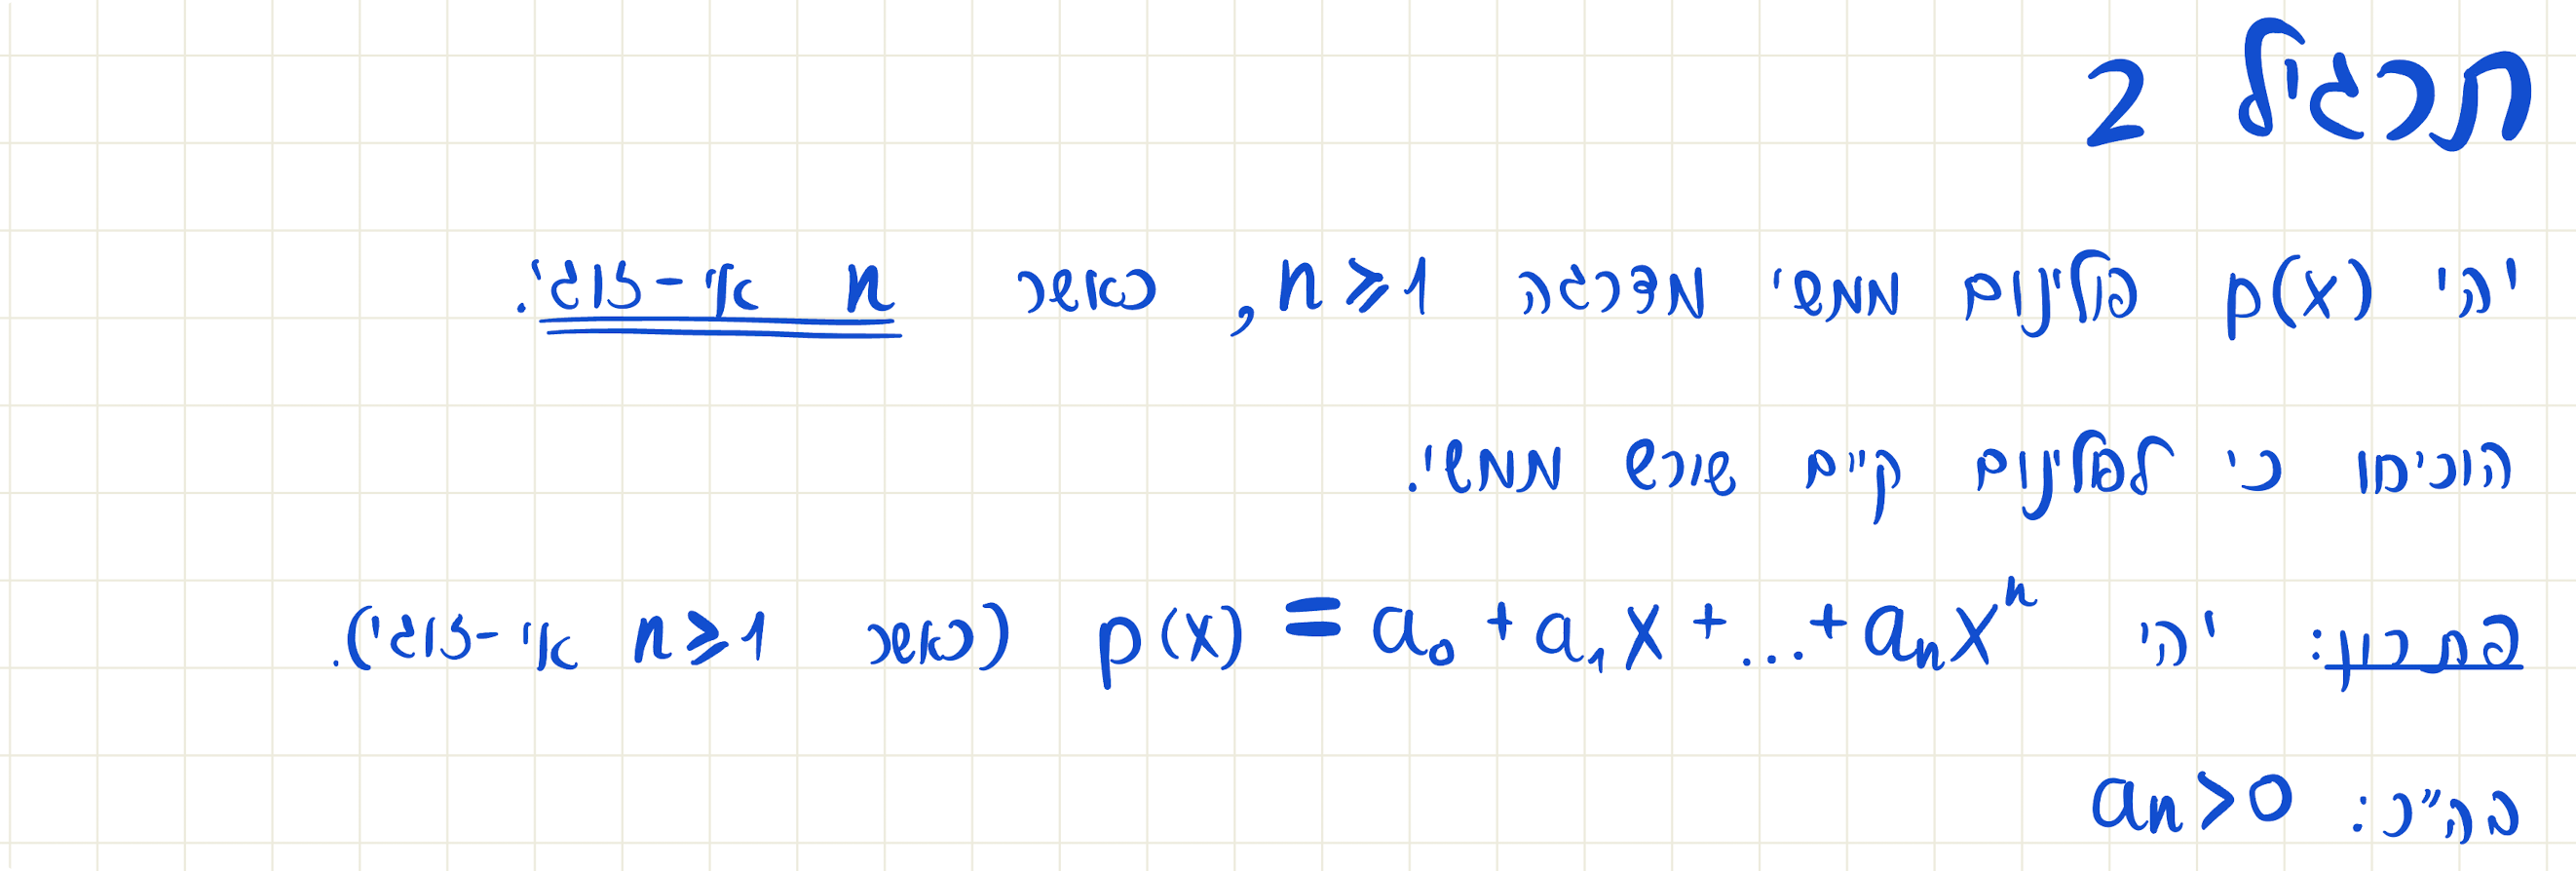 תרגיל 2
יהי p(x) פולינום ממשי מדרגה n≥1, כאשר n אי-זוגי.
הוכיחו כי לפולינום קיים שורש ממשי.
פתרון: יהי p(x) = a₀ + a₁x + ... + aₙxⁿ (כאשר n≥1 אי-זוגי).
בה"כ: aₙ>0